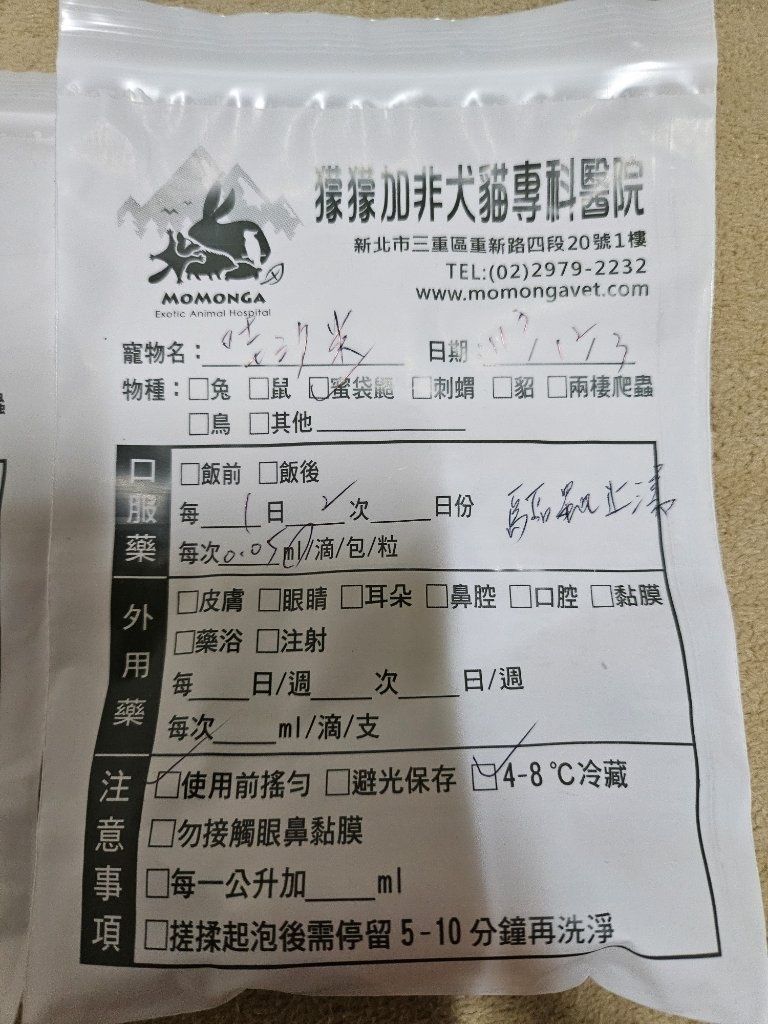 獴獴加非犬貓專科醫院
新北市三重區重新路四段20號1樓
TEL:(02)2979-2232
www.momongavet.com
MOMONGA
Exotic Animal Hospital
寵物名： 日期：113/12/3
物種：□兔 □鼠 □蜜袋鼯 □刺蝟 □貂 □兩棲爬蟲
□鳥 □其他
口服藥
□飯前 □飯後
每 1 日 2 次 日份
每次 0.05 ml/滴/包/粒
驅蟲止瀉
外用藥
□皮膚 □眼睛 □耳朵 □鼻腔 □口腔 □黏膜
□藥浴 □注射
每 日/週 次 日/週
每次 ml/滴/支
注意事項
□使用前搖勻 □避光保存 □4-8℃冷藏
□勿接觸眼鼻黏膜
□每一公升加 ml
□搓揉起泡後需停留5-10分鐘再洗淨
蟲